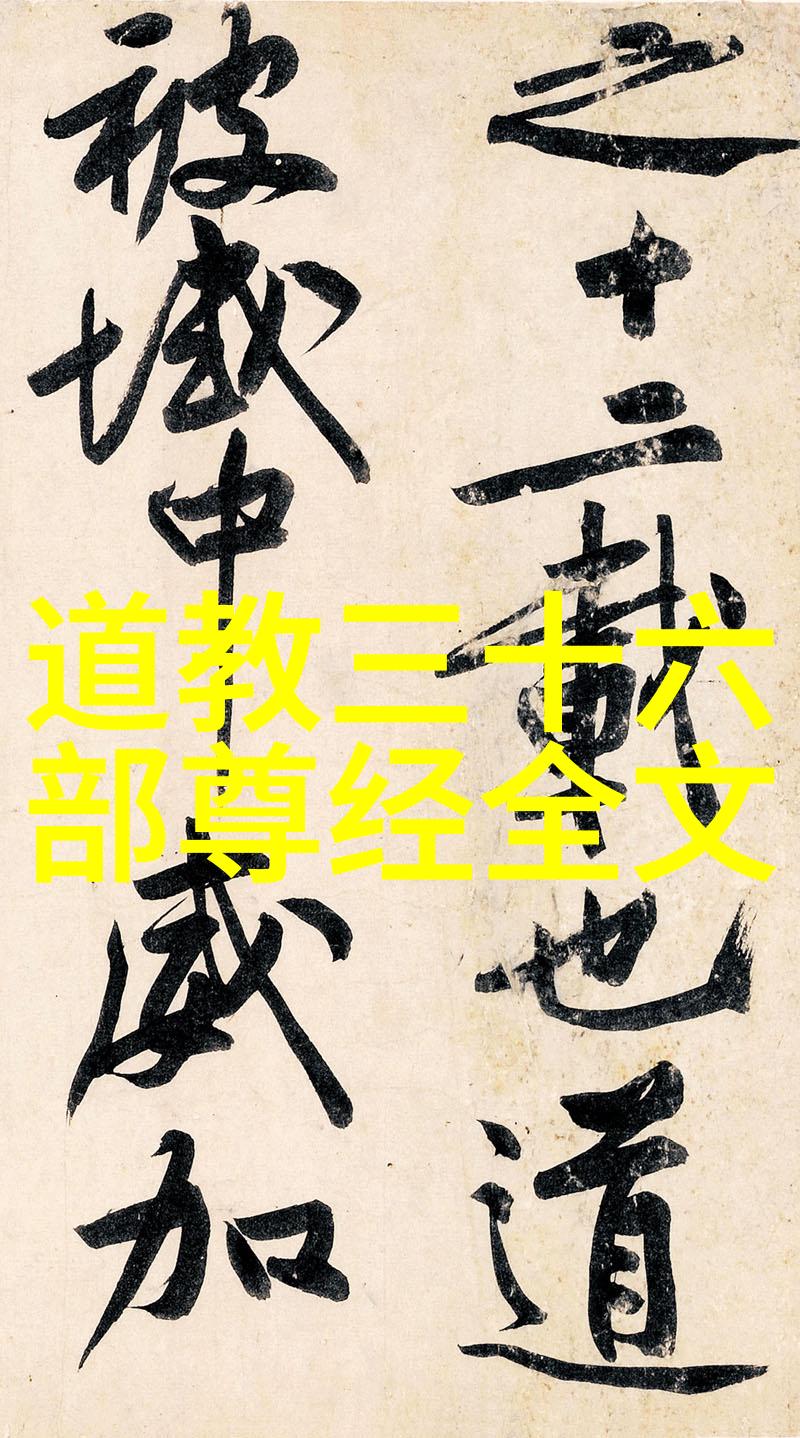 之十二載也道
被域中威加
道教三十六
部尊经全文